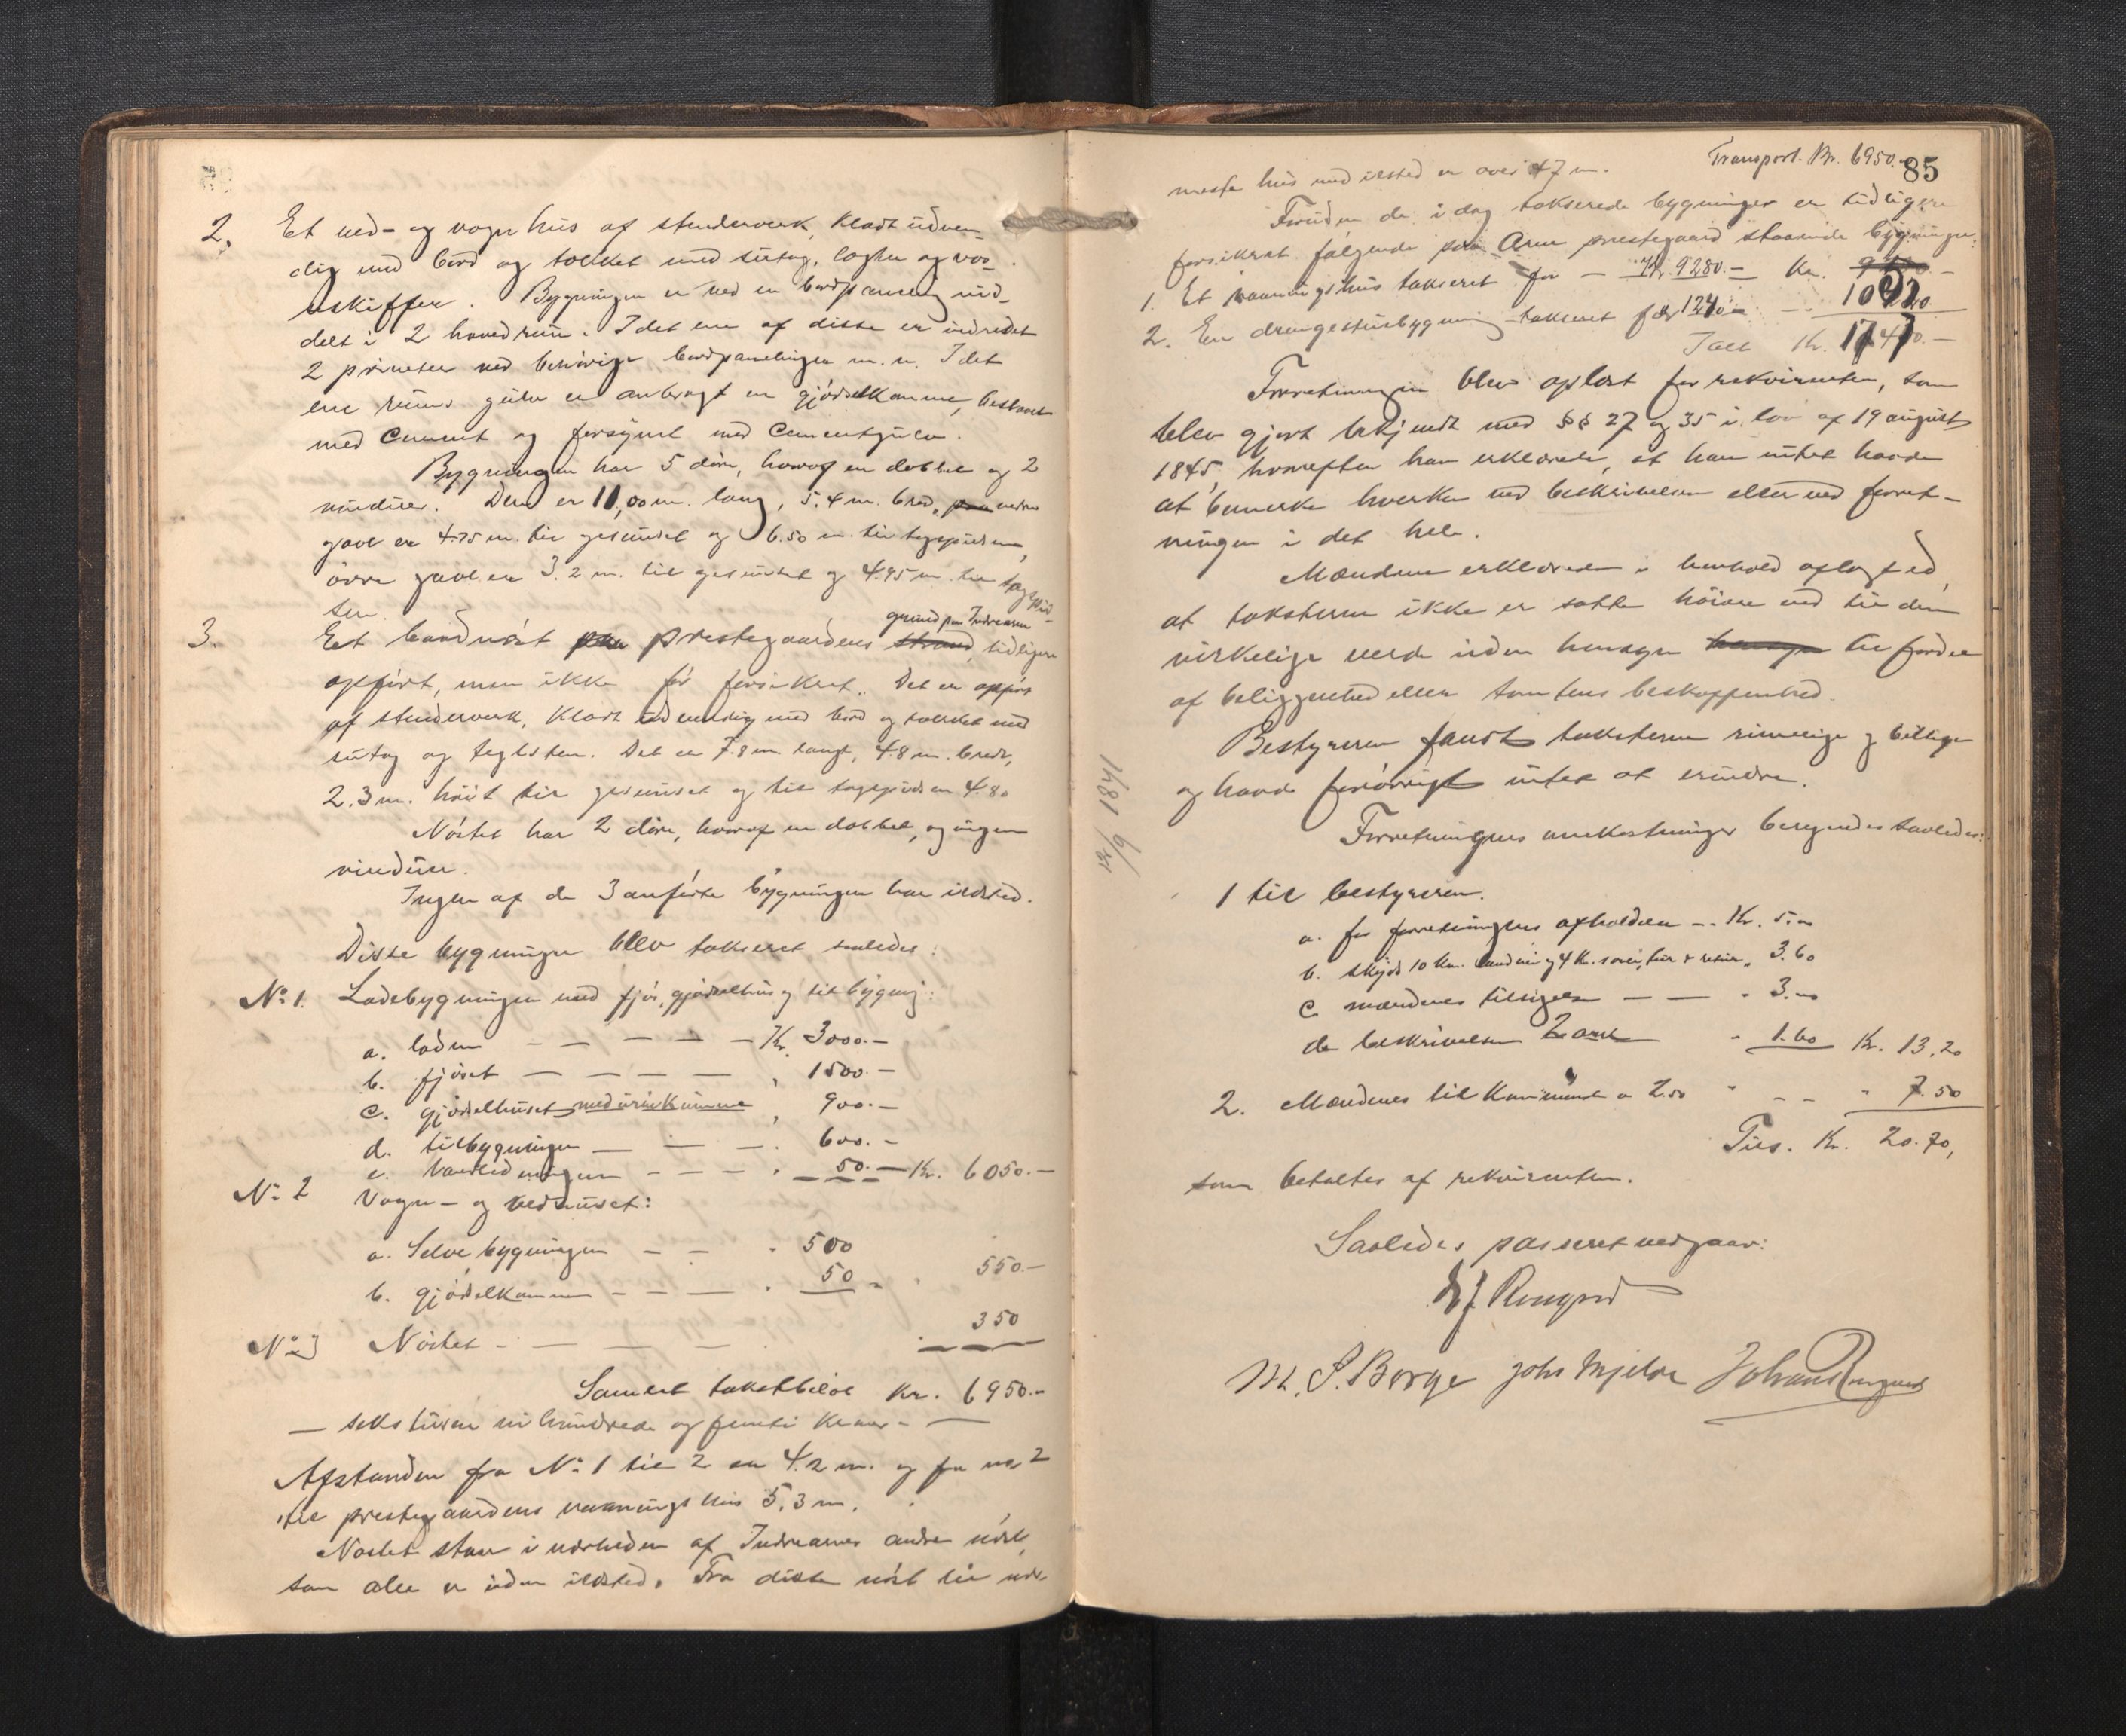 2. Et ved- og vognhus af stenderverk, klædt udven-
dig med bord og tækket med sutag, lægter og vos-
seskiffer. Bygningen er ved en bordpaneling ind-
delt i 2 hovedrum. I det ene af disse er indredet
2 priveter med behörige bordpanelinger m. m. I det
ene rums gulv er anbragt en gjödselkumme, beslaaet
med cement og forsynet med cementgulv.
Bygningen har 5 döre, hvoraf en dobbel og 2
vinduer. Den er 11,00 m. lang, 5.4 m. bred, paa nedre
gavl er 4.75 m. til gesimset og 6.50 m. til tagspidsen,
övre gavl er 3.2 m. til gesimset og 4.95 m. til tagspid-
sen.
3. Et baadnöst paa prestegaardens strand, tidligere
grund paa Indrearne
opfört, men ikke för forsikret. Det er opfört
af stenderverk, klædt udvendig med bord og tækket med
sutag og teglsten. Det er 7.8 m. langt, 4.8 m. bredt,
2.3 m. höit til gesimset og til tagspidsen 4.80
Nöstet har 2 döre, hvoraf en dobbel, og ingen
vinduer.
Ingen af de 3 anförte bygninger har ildsted.
Disse bygninger blev takseret saaledes:
No 1. Ladebygningen med fjös, gjödselhus og tilbygning:
a. laden — — — — — Kr. 3000.—
b. fjöset — — — — — " 1500.—
c. gjödselhuset med urinkumme " 900.—
d. tilbygningen — — — " 600.—
e. Vandledningen - - - " 50.— Kr. 6050.—
No 2 Vogn- og vedhuset:
a. Selve bygningen — — " 500
b. gjödselkummen - - — " 50 " 550.—
No 3 Nöstet - — — — 350
Samlet takstbelöb Kr. 6950.-
— seks tusen ni hundrede og femti kroner. —
Afstanden fra No 1 til 2 er 4.2 m. og fra no 2
til prestegaardens vaaningshus 5.3 m.
Nöstet staar i nærheden af Indrearnes andre nöst,
som alle er uden ildsted. Fra disse nöst til nær-
Transport. Kr. 6950.-
85
meste hus med ildsted er over 47 m.
Foruden de i dag takserede bygninger er tidligere
forsikret fölgende paa Arne prestegaard staaende bygninger:
1. Et vaaningshus takseret for — Kr. 9280.— Kr.
2. En drengestuebygning takseret for 1240
Ialt Kr.
Forretningen blev oplæst for rekvirenten, som
blev gjort bekjendt med §§ 27 og 35 i lov af 19 august
1845, hvorefter han erklærede, at han intet havde
at bemerke hverken ved beskrivelsen eller ved forret-
ningen i det hele.
Mændene erklærede i henhold aflagt ed,
at taksterne ikke er satte höiere end til den
virkelige verdi uden hensyn hensyn til fordel
af beliggenhed eller tomtens beskaffenhed.
Bestyreren fandt taksterne rimelige og billige
og havde forövrigt intet at erindre.
Forretningens omkostninger beregnedes saaledes:
1 til bestyreren.
a. for forretningens afholdelse -. Kr. 5.00
b. skyds 10 Km. landvei og 4 K. sövei, tur & retur „ 3.60
c mændenes tilsigelse — — " 3.00
d. beskrivelsen 2 ark " 1.60 Kr. 13.20
2. Mændenes tilkommende a 2.50 " - - " 7.50
Tils. Kr. 20.70,
som betaltes af rekvirenten.
Saaledes passeret vedgaar:
M. S. Borge Johs Mjelde Johans